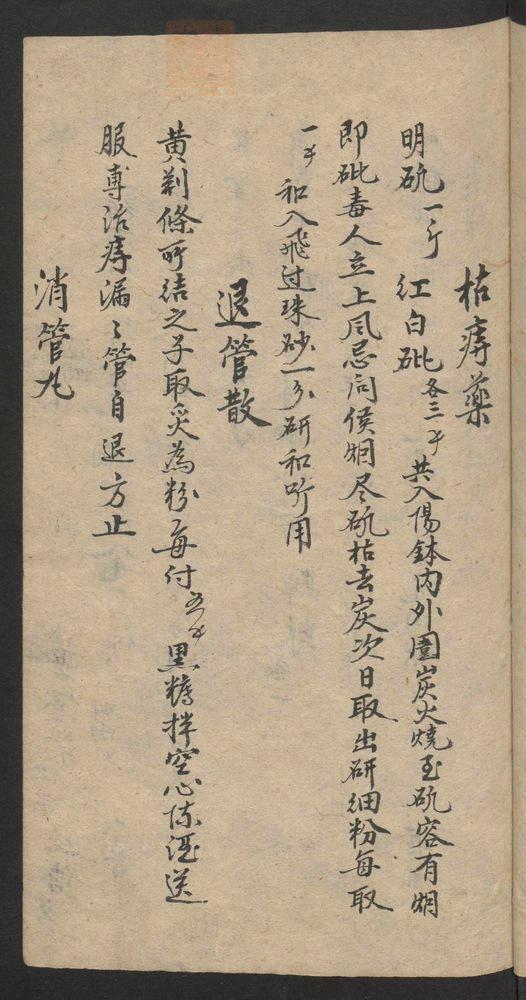 枯痔藥
明矾一斤 红白砒各三 共入陽鉢内外圍炭火燒至矾容有烟
即砒毒人立上風忌向侯烟尽矾枯去炭次日取出研细粉每取
一 和入飛过珠砂一分研和 用
退管散
黄荊條所结之子取炙為粉每付 黑糖拌空心陈酒送
服専治痔漏〻管自退方止
消管丸